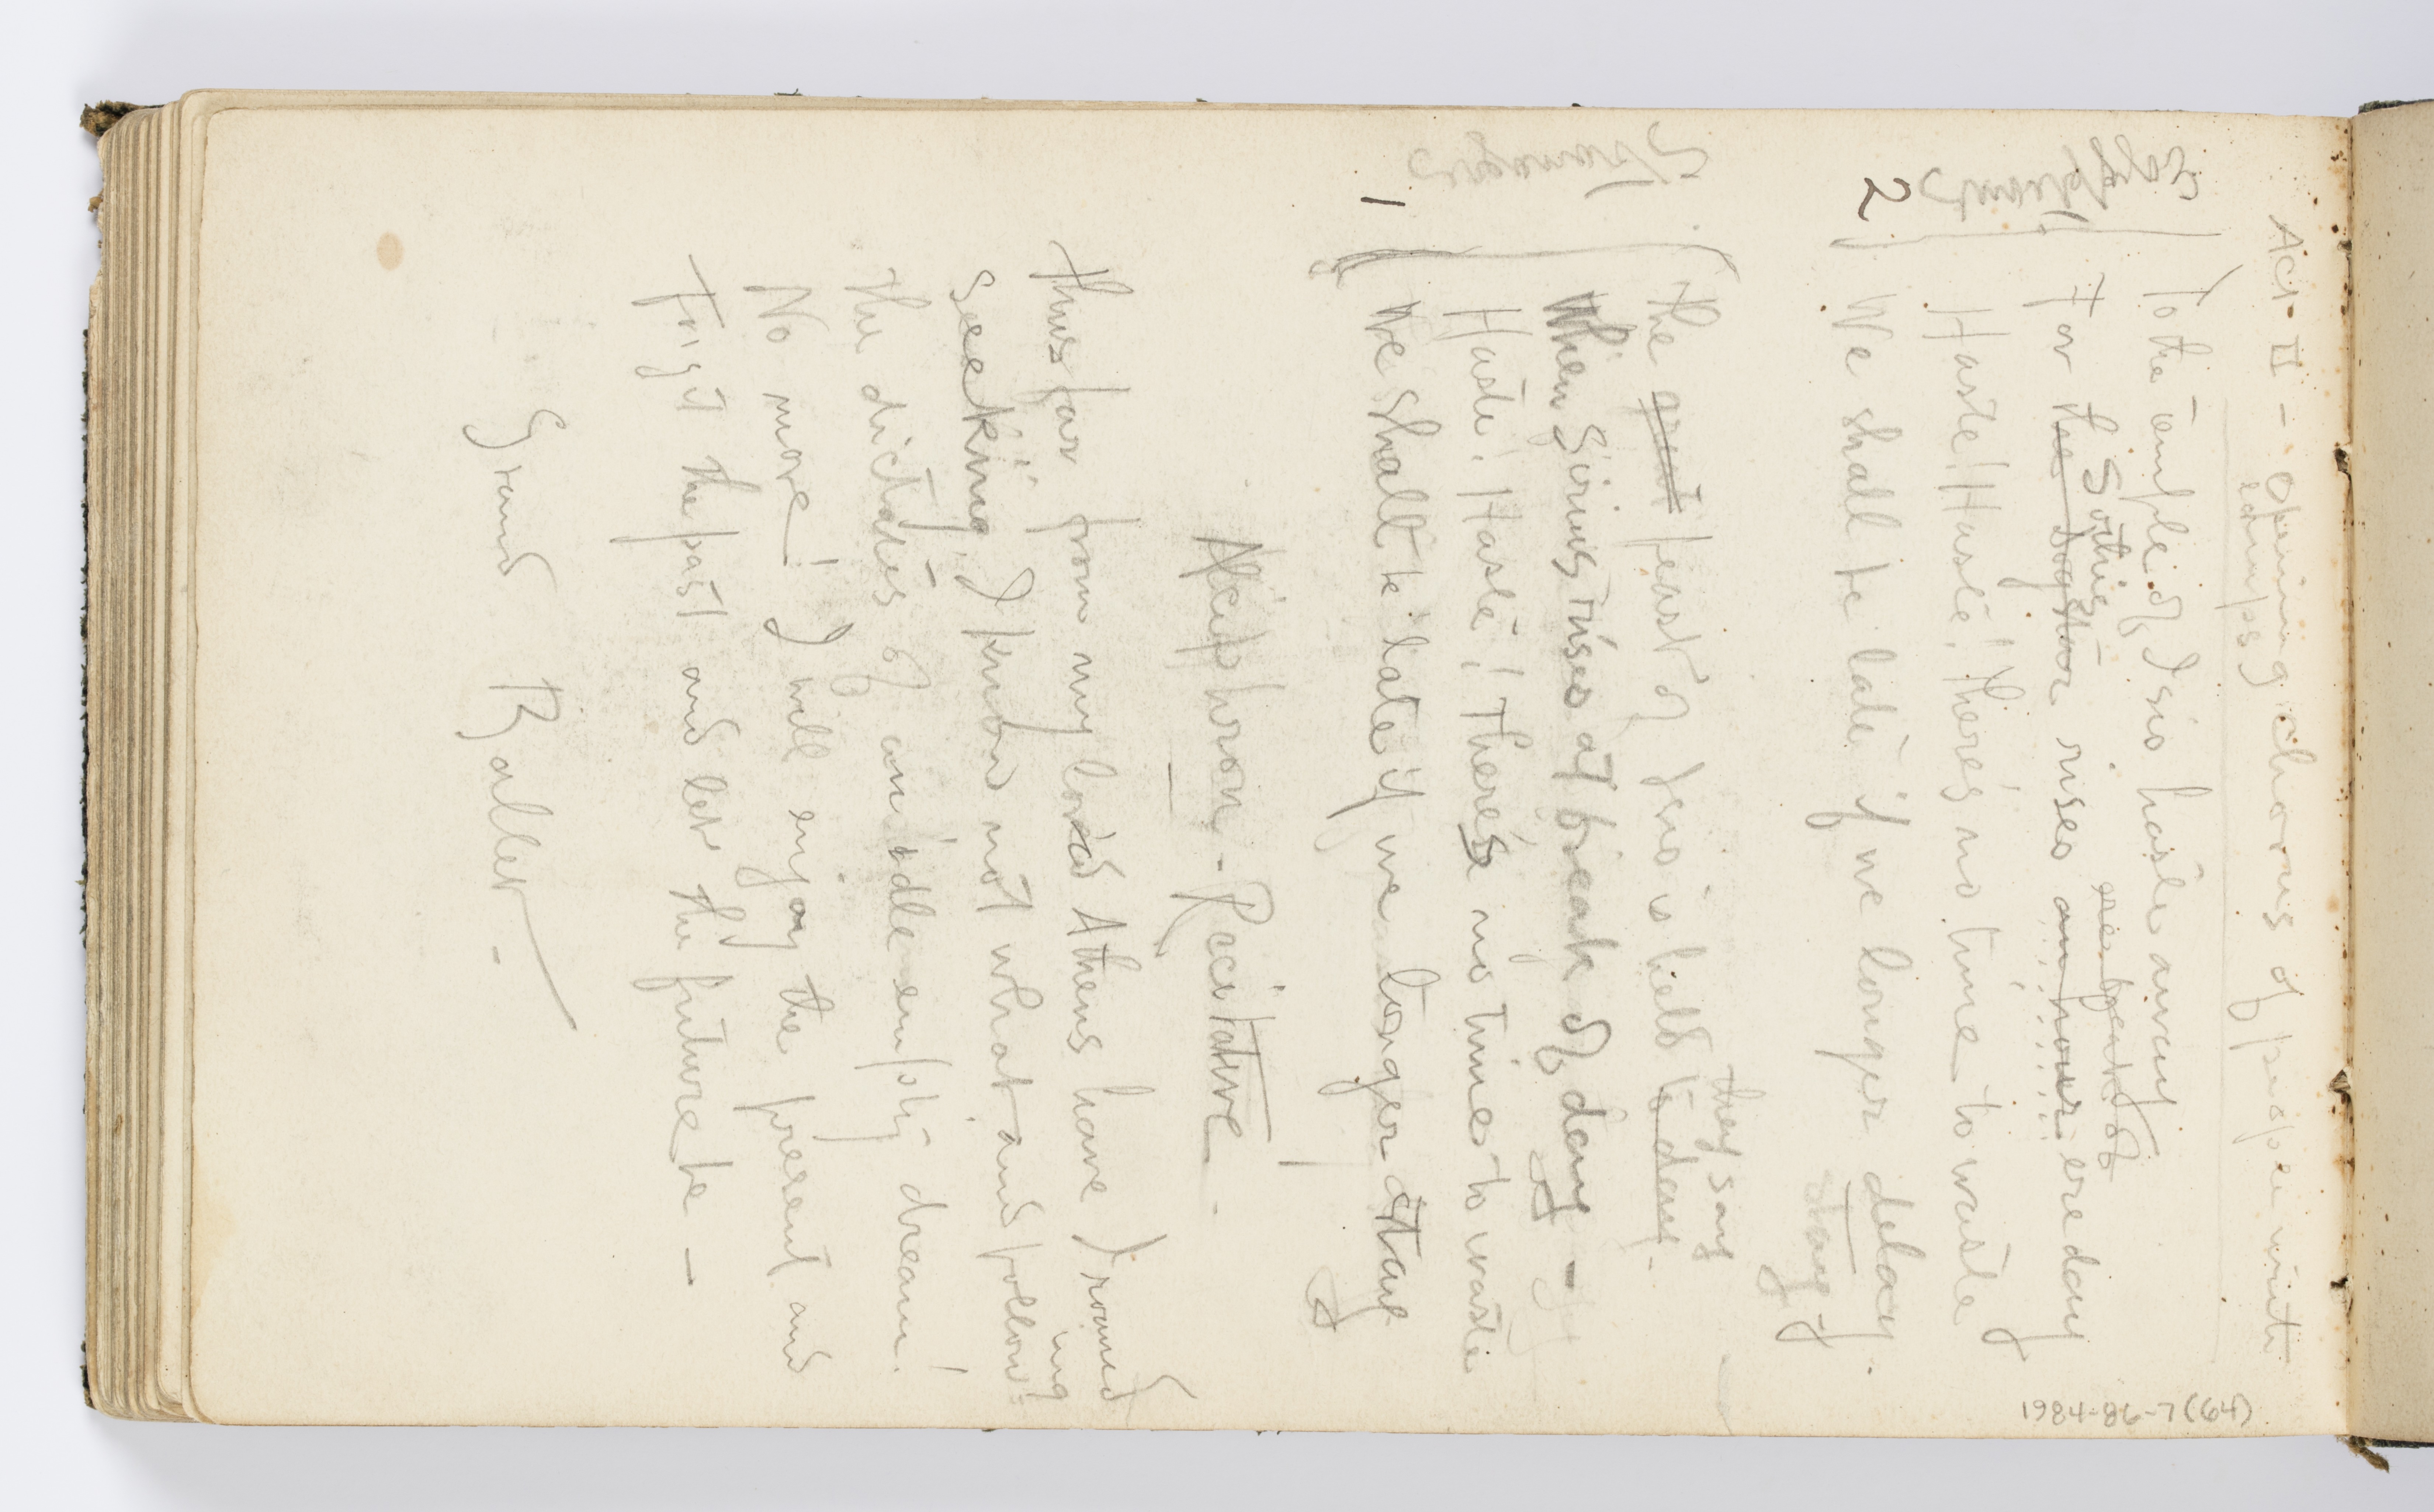 Act II - Opening chorus of people with
lamps
To the temple of Isis haste away
Sothis ere break of
For the dogstar rises an hour ere day
Haste! Haste! There's no time to waste
2 We shall be late if we longer delay.
stay
they say
The great feast of Isis is held to day.
When Sirius rises at break of day -
Haste! Haste! There's no time to waste
Strangers
1 We shall be late if we longer stay
Alciphron - Recitative.
Thus far from my loved Athens have I roamed
Seeking I know not what and follow-
ing
the dictates of an idle empty dream!
No more! I will enjoy the present and
Forget the past and let the future be -
Grand Ballet -
1984-86-7(64)